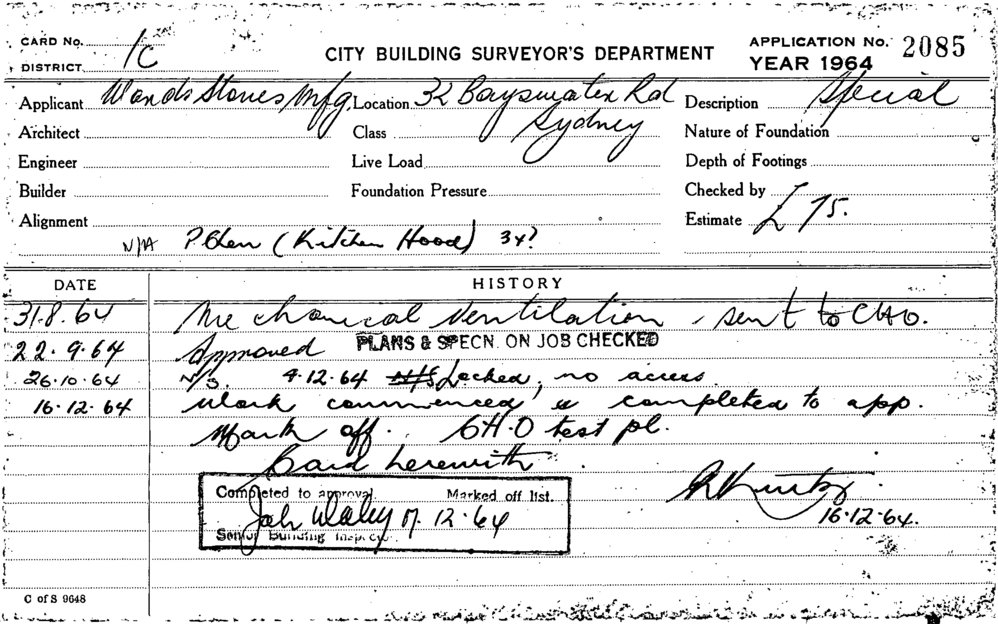 CARD No.
DISTRICT 1C
CITY BUILDING SURVEYOR'S DEPARTMENT
APPLICATION No. 2085
YEAR 1964
Applicant Stoves Mfg. Location 32 Bayswater Rd Description Special
Sydney
Architect Class Nature of Foundation
Engineer Live Load Depth of Footings
Builder Foundation Pressure Checked by
Alignment Estimate £75.
N/A (Kitchen Hood)
DATE HISTORY
31.8.64 Mechanical Ventilation, sent to CHO.
22.9.64 Approved PLANS & SPECN. ON JOB CHECKED
26.10.64 N/S. 4.12.64 Locked, no access
16.12.64 Work commenced & completed to app.
Mark off. CHO test pl.
Card herewith
Completed to approval. Marked off list.
17.12.64
Senior Building Inspector
16.12.64.
C of S 9648